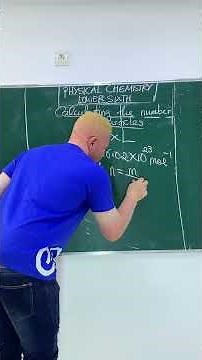 PHYSICAL CHEMISTRY
LOWER SIXTH
Calculating the number
x L
6.02x10²³ mol⁻¹
n = m